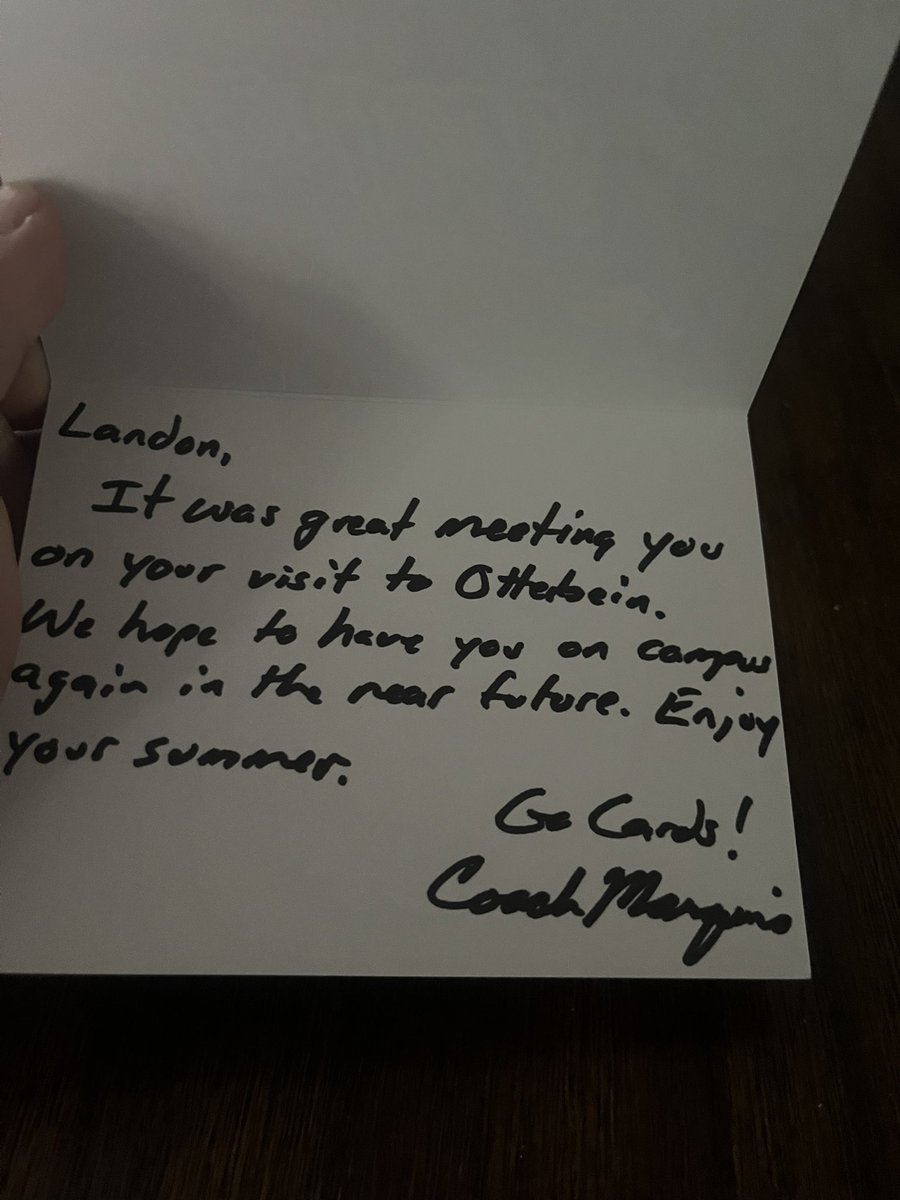 Landon,
It was great meeting you
on your visit to Otterbein.
We hope to have you on campus
again in the near future. Enjoy
your summer.
Go Cards!
Coach Marquis